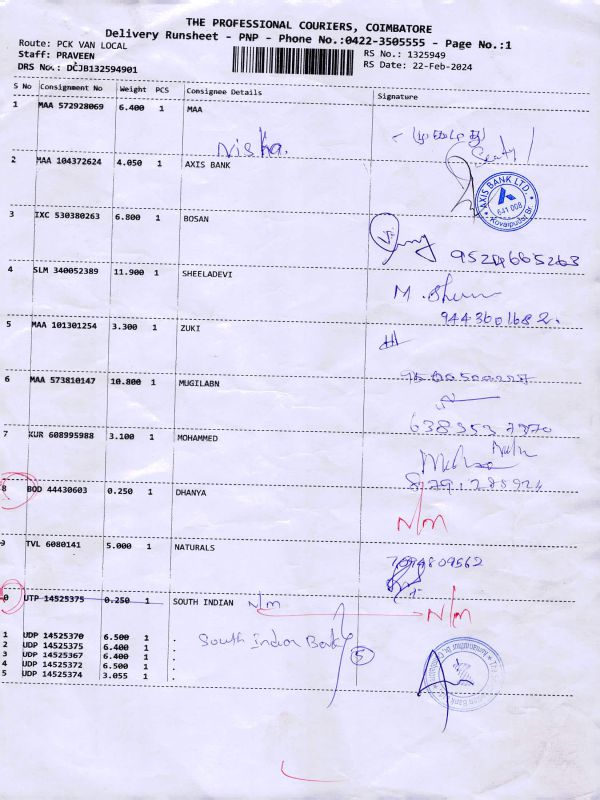 THE PROFESSIONAL COURIERS, COIMBATORE
Delivery Runsheet - PNP - Phone No.:0422-3505555 - Page No.:1
Route: PCK VAN LOCAL RS No.: 1325949
Staff: PRAVEEN RS Date: 22-Feb-2024
DRS No.: DCJB132594901
S No Consignment No Weight PCS Consignee Details Signature
1 MAA 572928069 6.400 1 MAA
Nisha.
2 MAA 104372624 4.050 1 AXIS BANK
AXIS BANK LTD.
641 008
3 IXC 530380263 6.800 1 BOSAN
9524665263
4 SLM 340052389 11.900 1 SHEELADEVI
9443601682.
5 MAA 101301254 3.300 1 ZUKI
6 MAA 573810147 10.800 1 MUGILABN
7 KUR 608995988 3.100 1 MOHAMMED
8 BOD 44430603 0.250 1 DHANYA
N/m
9 TVL 6080141 5.000 1 NATURALS
7094809562
0 UTP 14525375 0.250 1 SOUTH INDIAN N/m N/m
1 UDP 14525370 6.500 1 .
2 UDP 14525375 6.400 1 .
South Indian Bank
3 UDP 14525367 6.400 1 .
4 UDP 14525372 6.500 1 .
5
5 UDP 14525374 3.055 1 .